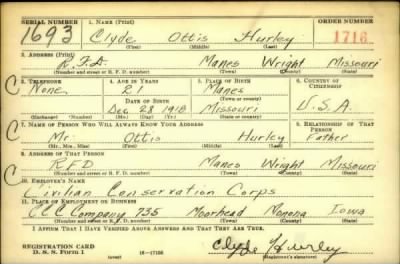 SERIAL NUMBER 1. NAME (Print) ORDER NUMBER
1693 Clyde Ottis Hurley 1716
(First) (Middle) (Last)
3. ADDRESS (Print)
R.F.D. Manes Wright Missouri
(Number and street or R. F. D. number) (Town) (County) (State)
3. TELEPHONE 4. AGE IN YEARS 5. PLACE OF BIRTH 6. COUNTRY OF CITIZENSHIP
None 21 Manes
DATE OF BIRTH (Town or county)
Dec 28 1918 Missouri U.S.A.
(Mo.) (Day) (Yr.) (State or country)
7. NAME OF PERSON WHO WILL ALWAYS KNOW YOUR ADDRESS 8. RELATIONSHIP OF THAT PERSON
Mr. Ottis Hurley Father
(Mr., Mrs., Miss) (First) (Middle) (Last)
9. ADDRESS OF THAT PERSON
RFD Manes Wright Missouri
(Number and street or R. F. D. number) (Town) (County) (State)
10. EMPLOYER'S NAME
Civilian Conservation Corps
11. PLACE OF EMPLOYMENT OR BUSINESS
CCC Company 735 Moorhead Monona Iowa
(Number and street or R. F. D. number) (Town) (County) (State)
I AFFIRM THAT I HAVE VERIFIED ABOVE ANSWERS AND THAT THEY ARE TRUE.
REGISTRATION CARD
D. S. S. FORM 1 16—17105 Clyde Hurley
(over) (Registrant's signature)